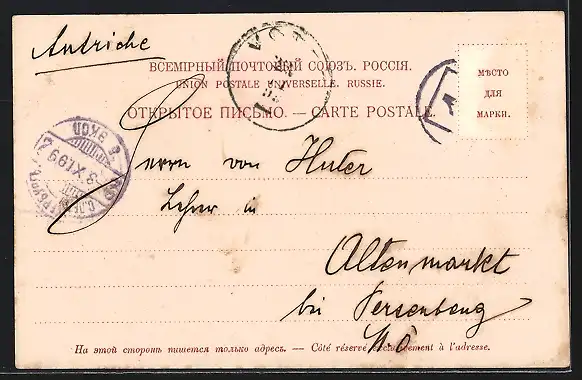 Autriche
ВСЕМІРНЫЙ ПОЧТОВЫЙ СОЮЗЪ. РОССІЯ.
UNION POSTALE UNIVERSELLE. RUSSIE.
ОТКРЫТОЕ ПИСЬМО. — CARTE POSTALE.
МѢСТО
ДЛЯ
МАРКИ.
3 XI 99
Herrn von Huter
Lehrer in
Altenmarkt
bei Persenbeug
N.Ö.
На этой сторонѣ пишется только адресъ. — Côté réservé exclusivement à l'adresse.